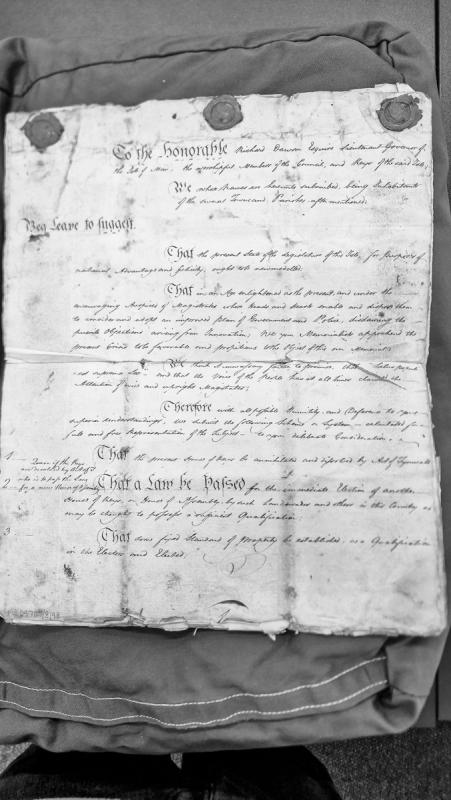 To the Honorable Richard Dawson Esquire Lieutenant Governor of
the Isle of Man, the worshipful Members of the Council, and Keys of the said Isle,
We whose Names are hereunto subscribed, being Inhabitants
of the several Towns and Parishes after mentioned
Beg Leave to suggest.
That the present State of the Legislature of this Isle, for purposes of
national Advantage and felicity, ought to be new modelled.
That in an Age enlightened as the present, and under the
encouraging Auspices of Magistrates whose Heads and Hearts enable and dispose them
to consider and adopt an improved plan of Government and Police, disdaining the
puerile Objections arising from Innovation, We your Memorialists apprehend the
present Crisis to be favorable and propitious to the Object of this our Memorial
We think it unnecessary further to premise, that Salus populi
est suprema Lex and that the Voice of the People have at all times the
Attention of wise and upright Magistrates;
Therefore with all possible Humility and Deference to your
superior Understandings, We submit the following Scheme or System calculated for
full and free Representation of the Subject to your deliberate Consideration.
1 That the present House of Keys be annihilated and dissolved by Act of Tynwald
2 That a Law be Passed for the immediate Election of another
House of Keys, or House of Assembly, by such Landowners and others in this Country as
may be thought to possess a sufficient Qualification.
3 That some fixed Standard of Property be established, as a Qualification
in the Electors and Elected.